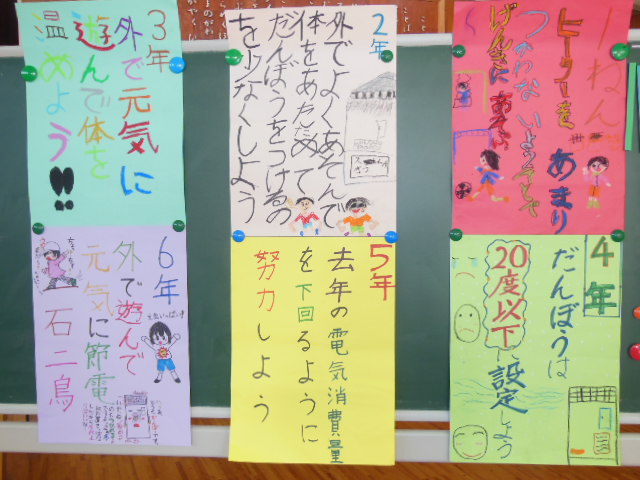 1ねん
ヒーターを あまり
つかわない ように そとで
げんきに あそぼう
2年
外でよくあそんで
体をあたためて
だんぼうをつけるの
を少なくしよう
3年
外で元気に
遊んで体を
温めよう!!
4年
だんぼうは
20度以下に設定しよう
5年
去年の電気消費量
を下回るように
努力しよう
6年
外で遊んで
元気に節電
石二鳥